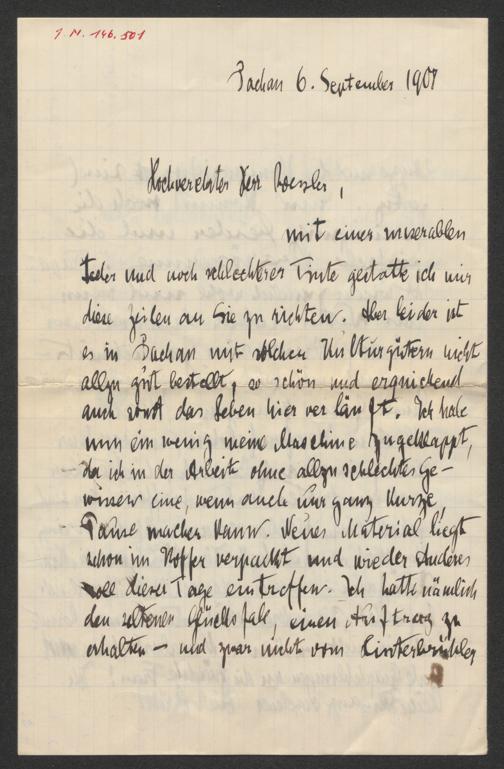 J. N. 146.501
Dachau 6. September 1907
Hochverehrter Herr Roessler,
mit einer miserablen
Feder und noch schlechterer Tinte gestatte ich mir
diese Zeilen an Sie zu richten. Aber leider ist
es in Dachau mit solchen Kulturgütern nicht
allzu gut bestellt, so schön und erquickend
auch sonst das Leben hier verläuft. Ich habe
nun ein wenig meine Maschine zugeklappt,
da ich in der Arbeit ohne allzu schlechtes Ge-
wissen eine, wenn auch nur ganz kurze,
Pause machen kann. Neues Material liegt
schon im Koffer verpackt und wieder Anderes
soll dieser Tage eintreffen. Ich hatte nämlich
den seltenen Glücksfall, einen Auftrag zu
erhalten – und zwar nicht vom